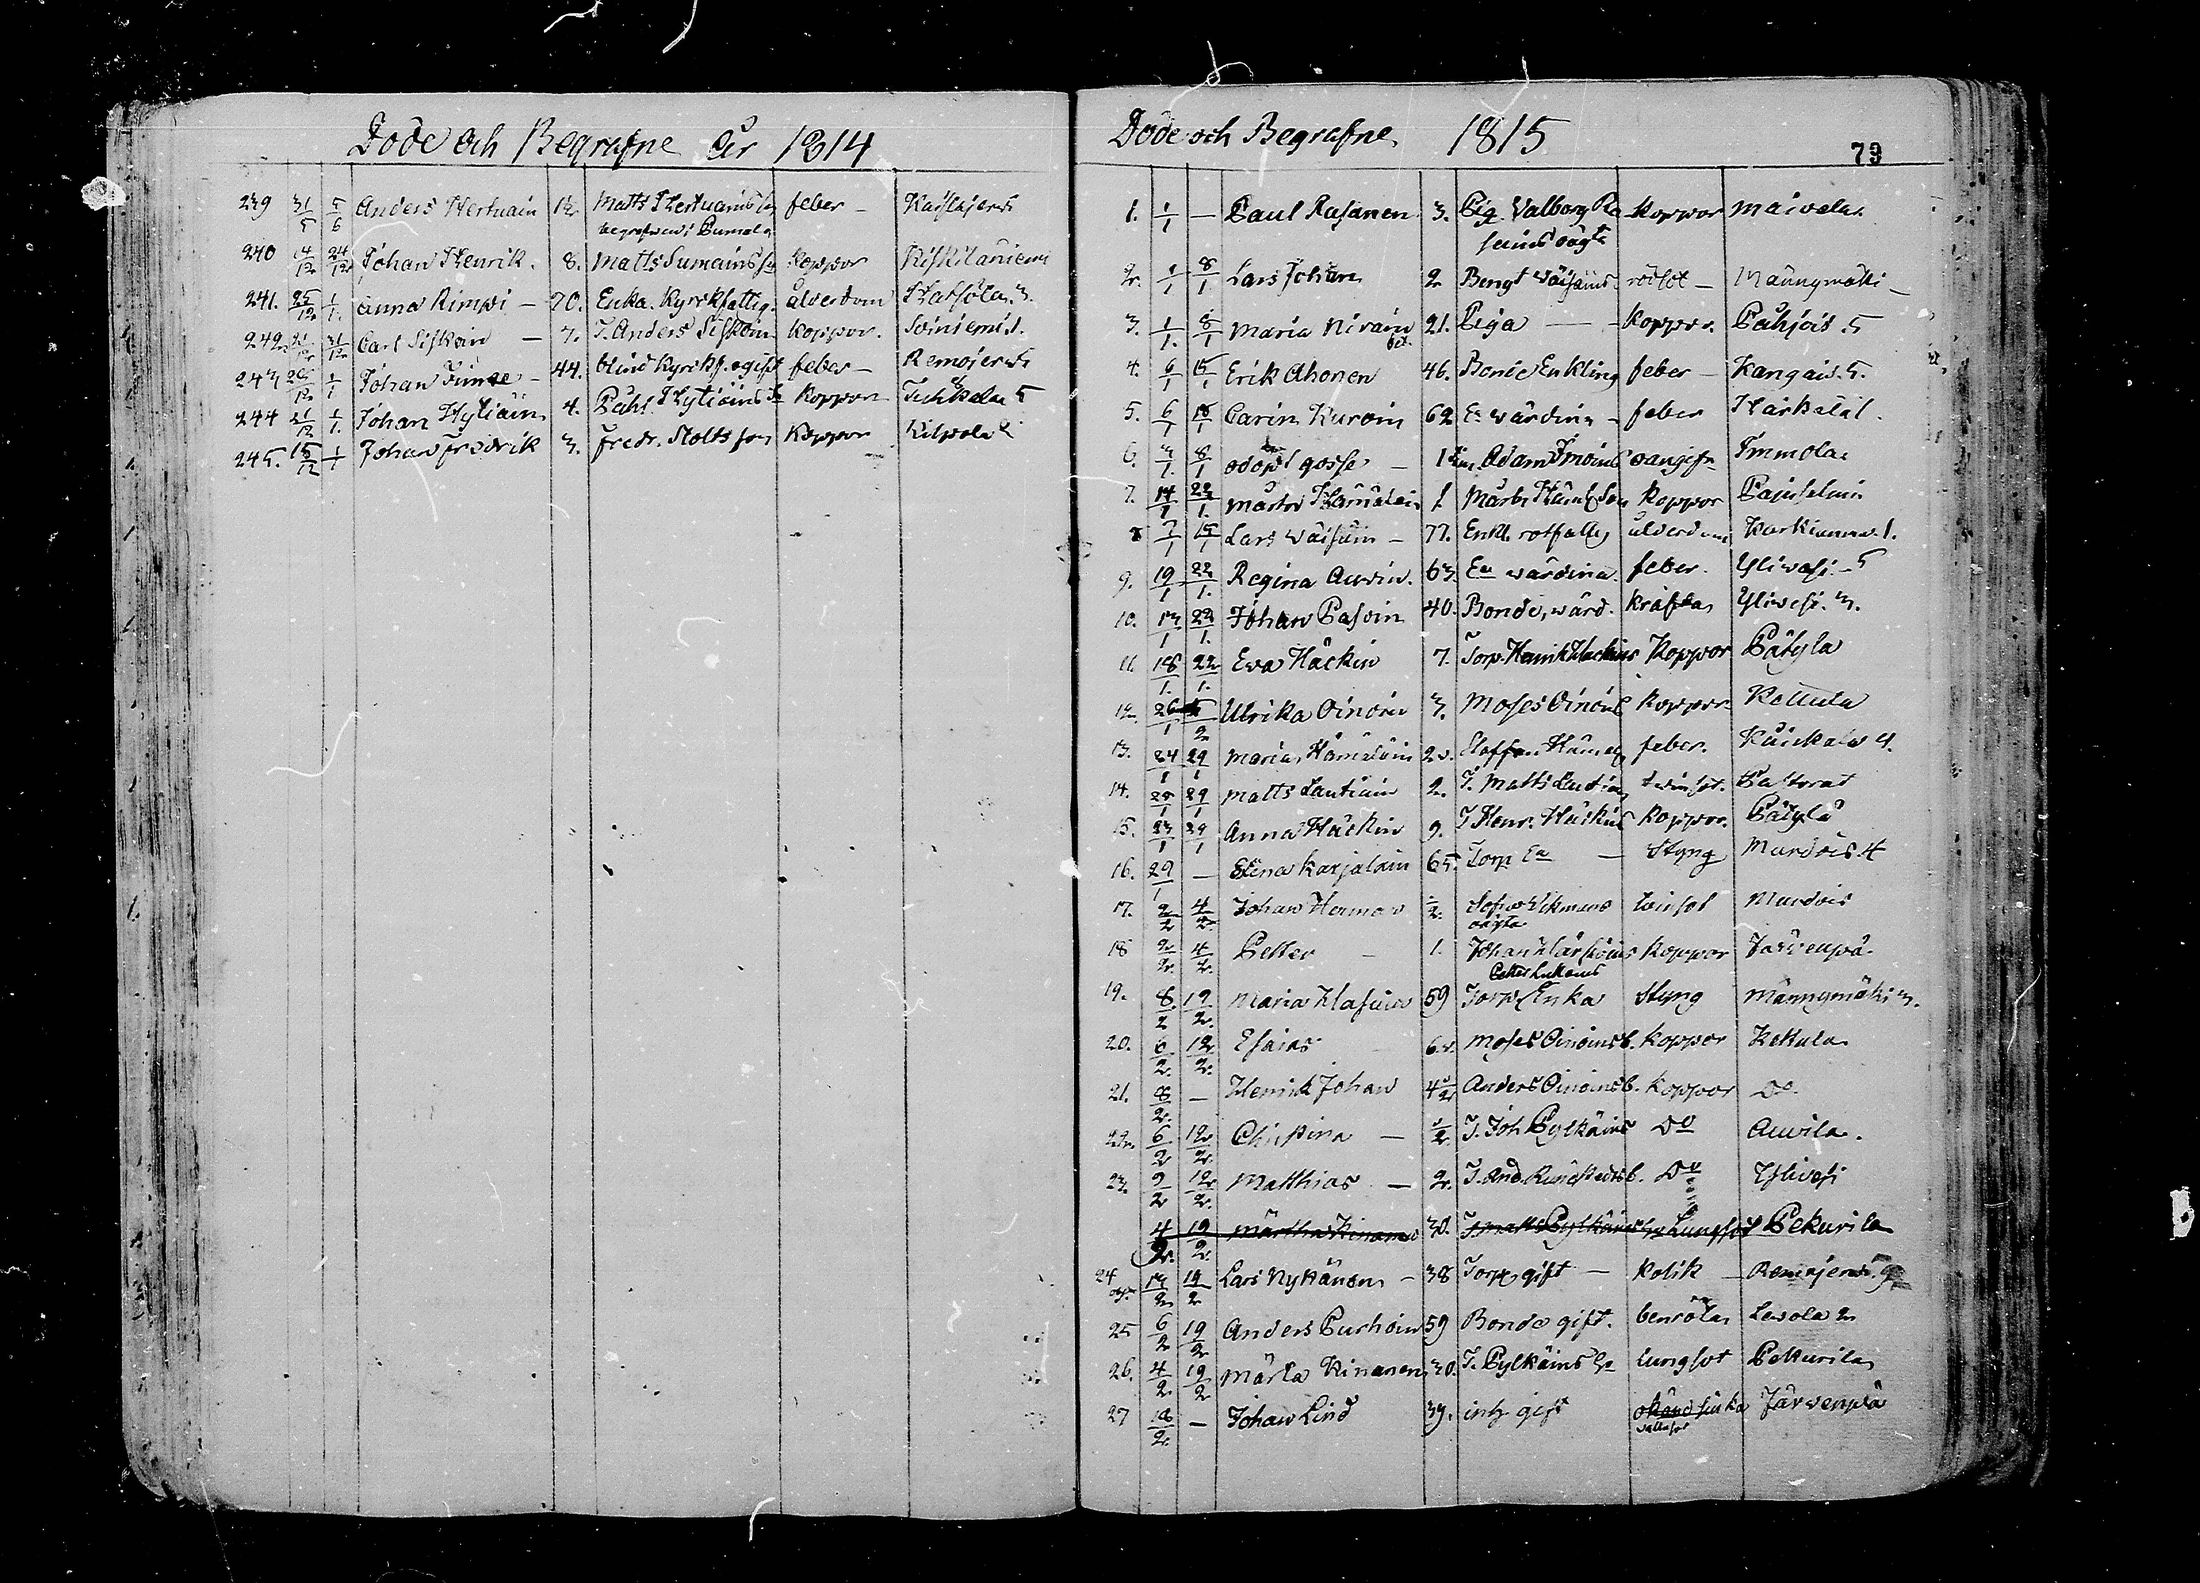 Döde och Begrafne År 1814
239 31/5 5/6 Anders Hertuain 12 Matts Hertuains son feber - Kaislajerwi
begrafwen i Pumala
240 4/12 24/12 Johan Henrik. 8. Matts Sumains son Koppor Riskilaniemi
241. 25/12 1/1. Anna Rimpi - 70. Enka. Kyrkfattig. ålderdom
242. 31/12 Carl Siskoin - 7. T. Anders Siskoin Koppor. Soiniemi 1.
243 1/1 Johan - 44. blind Kyrkf. ogift feber - Remojerwi
244 21/12 1/1. Johan Hytiäin 4. Påhl Hytiäins Koppor 5
245. 15/12 1/1 Johan Fredrik 3. Fredr. Stolts son Koppor Kilpola 2
Döde och Begrafne 1815
79
1. 1/1 - Paul Rasanen 3. Pig. Valborg Ra Koppor Maivala.
sains oägta
2. 1/1 8/1 Lars Johan 2 Bengt Wäisäins rödsot - Männymäki -
3. 1/1. 8/1 Maria Nirain 21. Piga - Koppor. Pahjois. 5
4. 6/1 15/1 Erik Ahonen 46. Bonde Enkling feber - Kangais. 5.
5. 6/1 15/1 Carin Kuroin 62 Ea wärdina - feber Härkälä 1.
6. 3/1. 8/1 odöpt gosse - 1 Adam Imoins oangifn Immola
7. 14/1 22/1. Mårten Hämäläin 1. Mårt. Häml. son Koppor Pajuselmi
8 7/1 15/1 Lars Wäisäin - 77. Enkl. rotfattig ålderdom Karkiamaa 1.
9. 19/1 22/1. Regina Auwin. 63. Ea wärdina. feber. Yliwesi - 5
10. 13/1 22/1. Johan Pasoin 40. Bonde, wärd. kräftan Yliwesi. 3.
11 18/1. 22/1. Eva Häckin 7. Torp. Henrik Häckins Koppor Pätylä
12. 26/1 Ulrika Oinoin 3. Moses Oinoins Koppor Kettula
13. 24/1 29/1 Maria Hämäläin Staffan Häm. feber. 4.
14. 25/1 29/1 Matts Lautiain 2. T. Matts Lautiain twinsot. Pastorat
15. 23/1 29/1 Anna Häckin 9. T Henr. Häckins Koppor. Pätylä
16. 29/1 - Stina Karjalain 65. Torp Ea - Styng Murdois 4
17. 2/2 4/2. Johan Herman ½. Sofia Ekmans twinsot Murdois
oägta
18 2/2. 4/2. Petter - 1. Johan Koppor Järvenpä.
19. 8/2 19/2. Maria 59 Torp. Enka Styng Männymäki 3.
20. 6/2. 12/2. Esaias 6. Moses Oinoins b. Koppor Kettula
21. 8/2. - Henrik Johan 4½ Anders Oinoins b. Koppor Do.
22. 6/2 12/2. Christina - ½ T. Joh. Pylkäins Do Auvila.
23. 9/2 12/2. Matthias - 2. T. And. b. Do Yliwesi
4/2. 19/2. Märtha Kinanen 30. T. Matts Pylkäins Lungsot Pekurila
24 13/2 19/2 Lars Nykänen - 38 Torp. gift - Kolik - Remojerwi.
25 6/2 19/2 Anders Purhoin 59 Bonde gift. benrötan Lewola 2
26. 4/2 19/2 Märta Kinanen 30. T. Pylkäins Lungsot Pekurila
27 18/2. - Johan Lind 39. inh. gift okänd siuka Järwenpä
wattusot